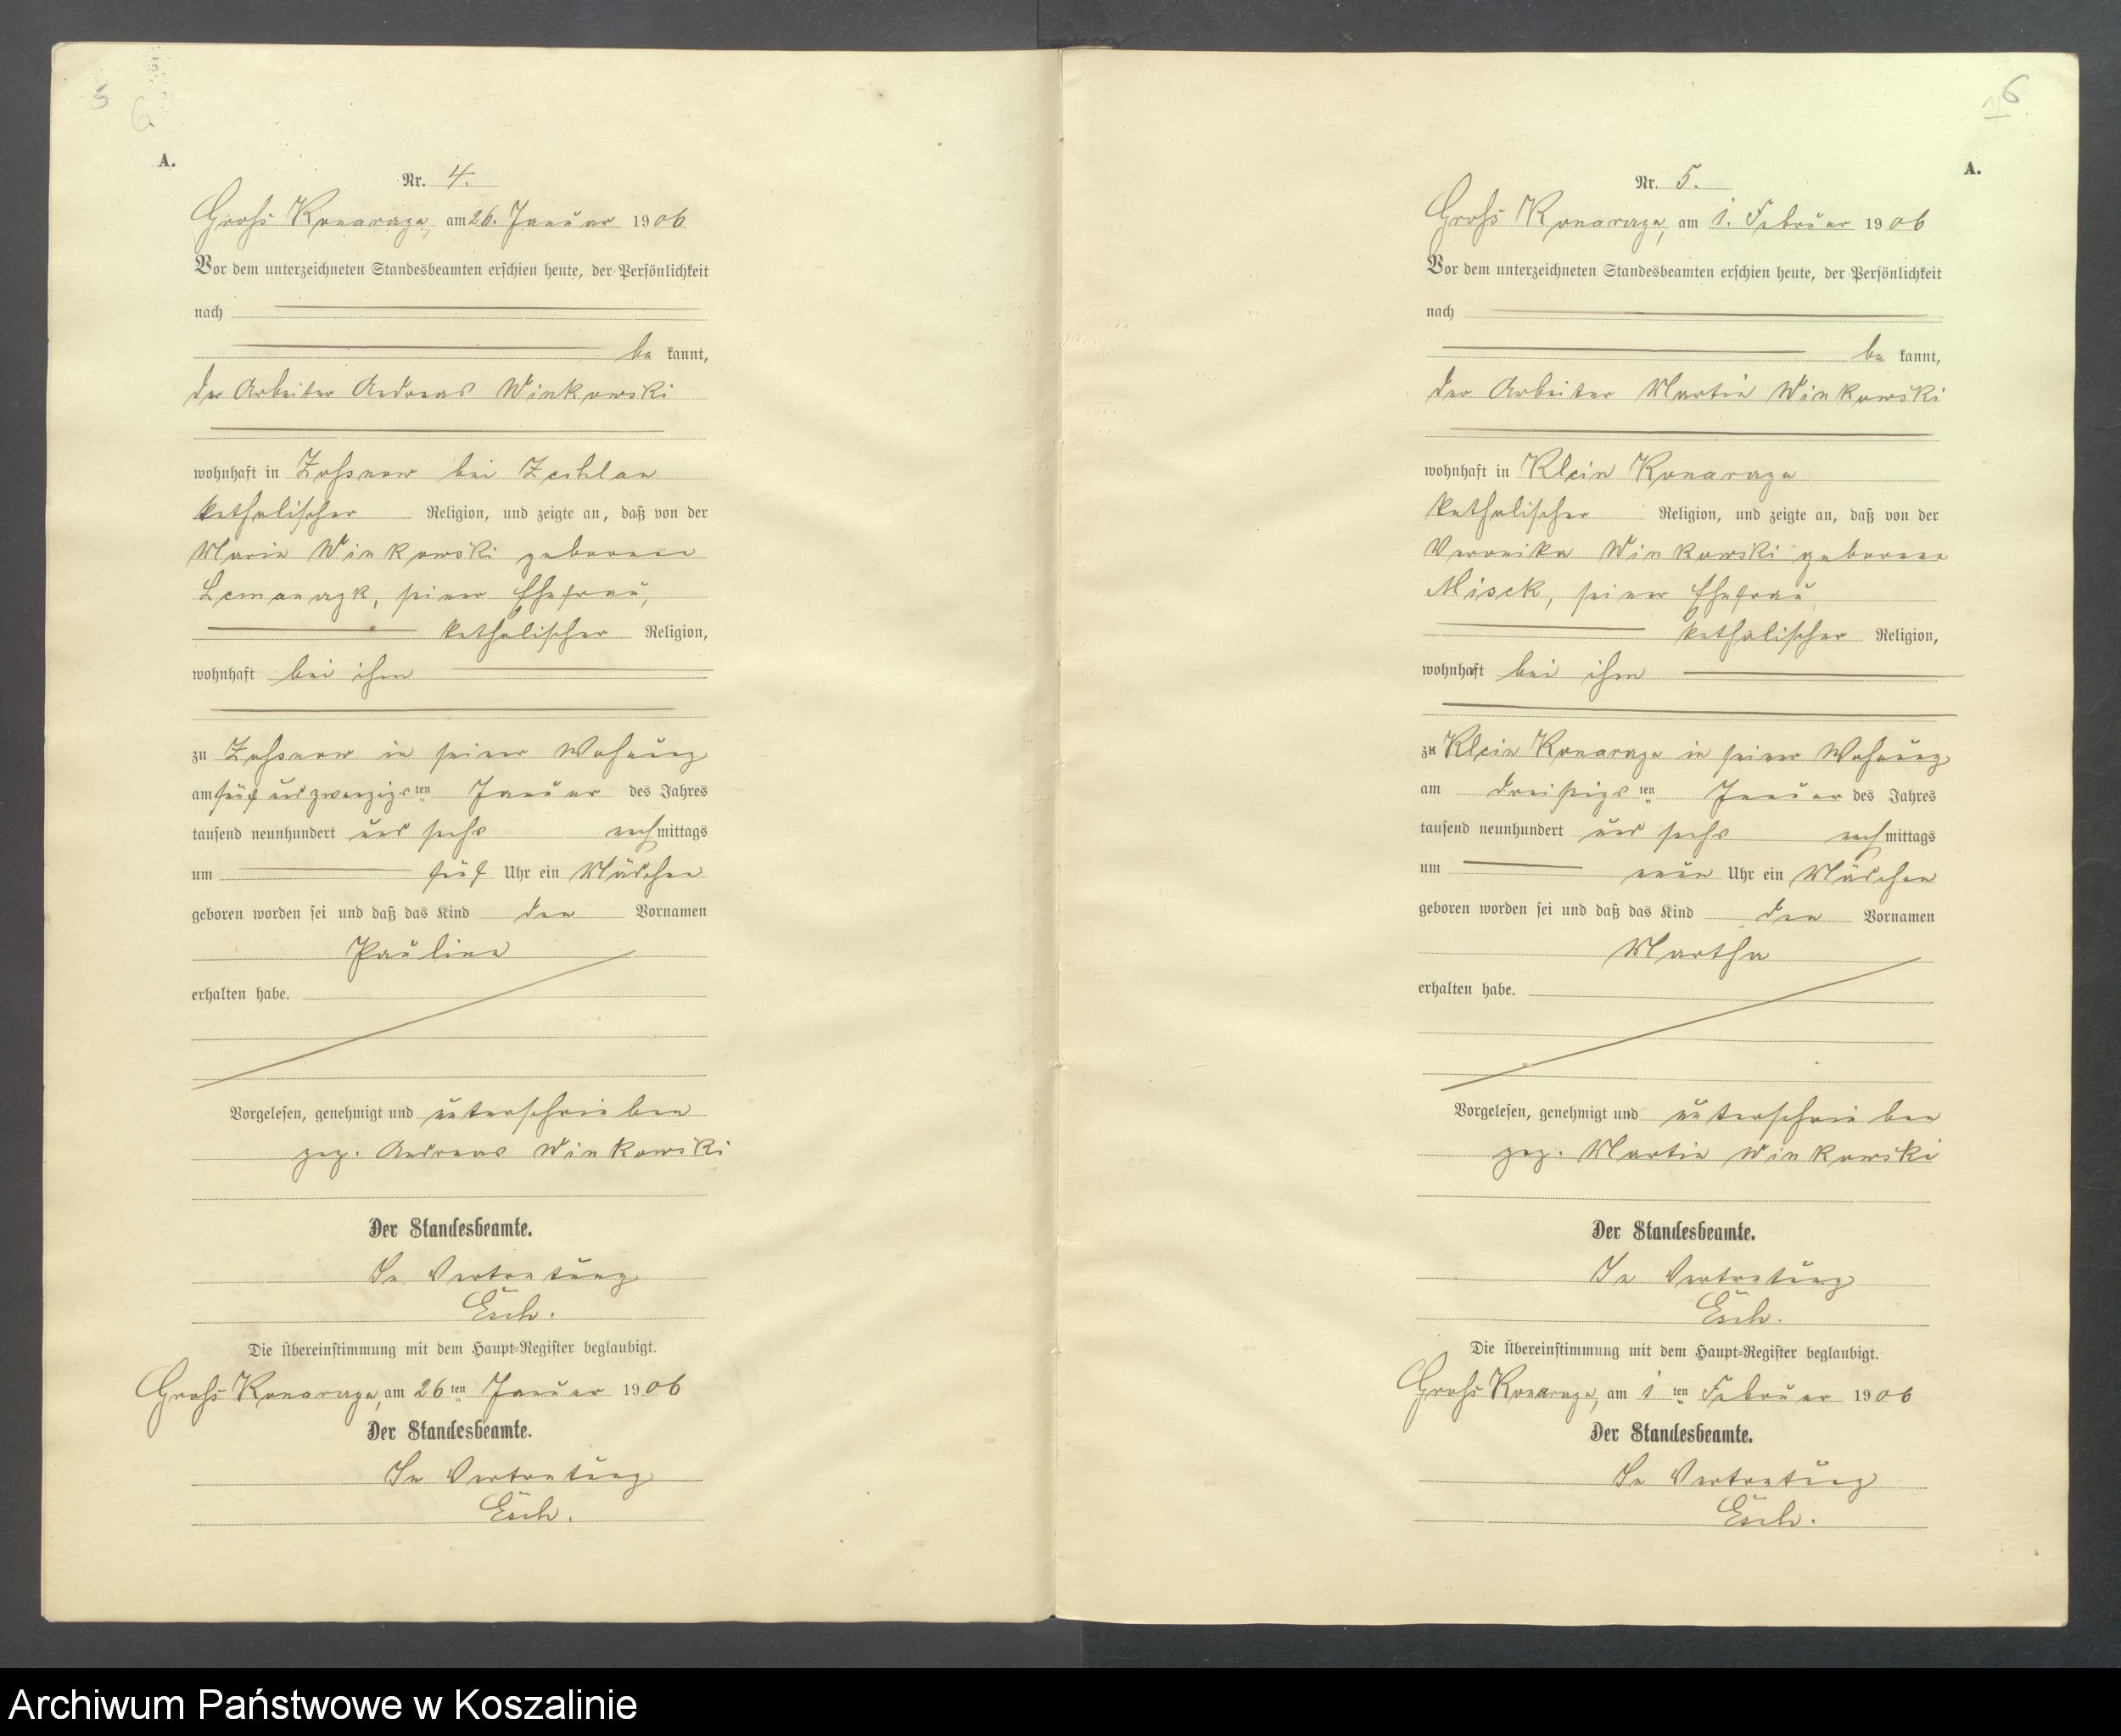 5
6
A.
Nr. 4.
Groß Konarzyn, am 26. Januar 1906
Vor dem unterzeichneten Standesbeamten erschien heute, der Persönlichkeit
nach
be kannt,
der Arbeiter Andreas Winkowski
wohnhaft in bei Zechlau
katholischer Religion, und zeigte an, daß von der
Maria Winkowski geborene
seiner Ehefrau,
katholischer Religion,
wohnhaft bei ihm
zu in seiner Wohnung
am fünf und zwanzigsten Januar des Jahres
tausend neunhundert und sechs nachmittags
um fünf Uhr ein Mädchen
geboren worden sei und daß das Kind den Vornamen
Pauline
erhalten habe.
Vorgelesen, genehmigt und unterschrieben
gez. Andreas Winkowski
Der Standesbeamte.
In Vertretung
Esch.
Die Übereinstimmung mit dem Haupt-Register beglaubigt.
Groß Konarzyn, am 26ten Januar 1906
Der Standesbeamte.
In Vertretung
Esch.
6
A.
Nr. 5.
Groß Konarzyn, am 1. Februar 1906
Vor dem unterzeichneten Standesbeamten erschien heute, der Persönlichkeit
nach
be kannt,
der Arbeiter Martin Winkowski
wohnhaft in Klein Konarzyn
katholischer Religion, und zeigte an, daß von der
Veronika Winkowski geborene
Misck, seiner Ehefrau,
katholischer Religion,
wohnhaft bei ihm
zu Klein Konarzyn in seiner Wohnung
am dreißigsten Januar des Jahres
tausend neunhundert und sechs nachmittags
um neun Uhr ein Mädchen
geboren worden sei und daß das Kind den Vornamen
Martha
erhalten habe.
Vorgelesen, genehmigt und unterschrieben
gez. Martin Winkowski
Der Standesbeamte.
In Vertretung
Esch.
Die Übereinstimmung mit dem Haupt-Register beglaubigt.
Groß Konarzyn, am 1ten Februar 1906
Der Standesbeamte.
In Vertretung
Esch.
Archiwum Państwowe w Koszalinie